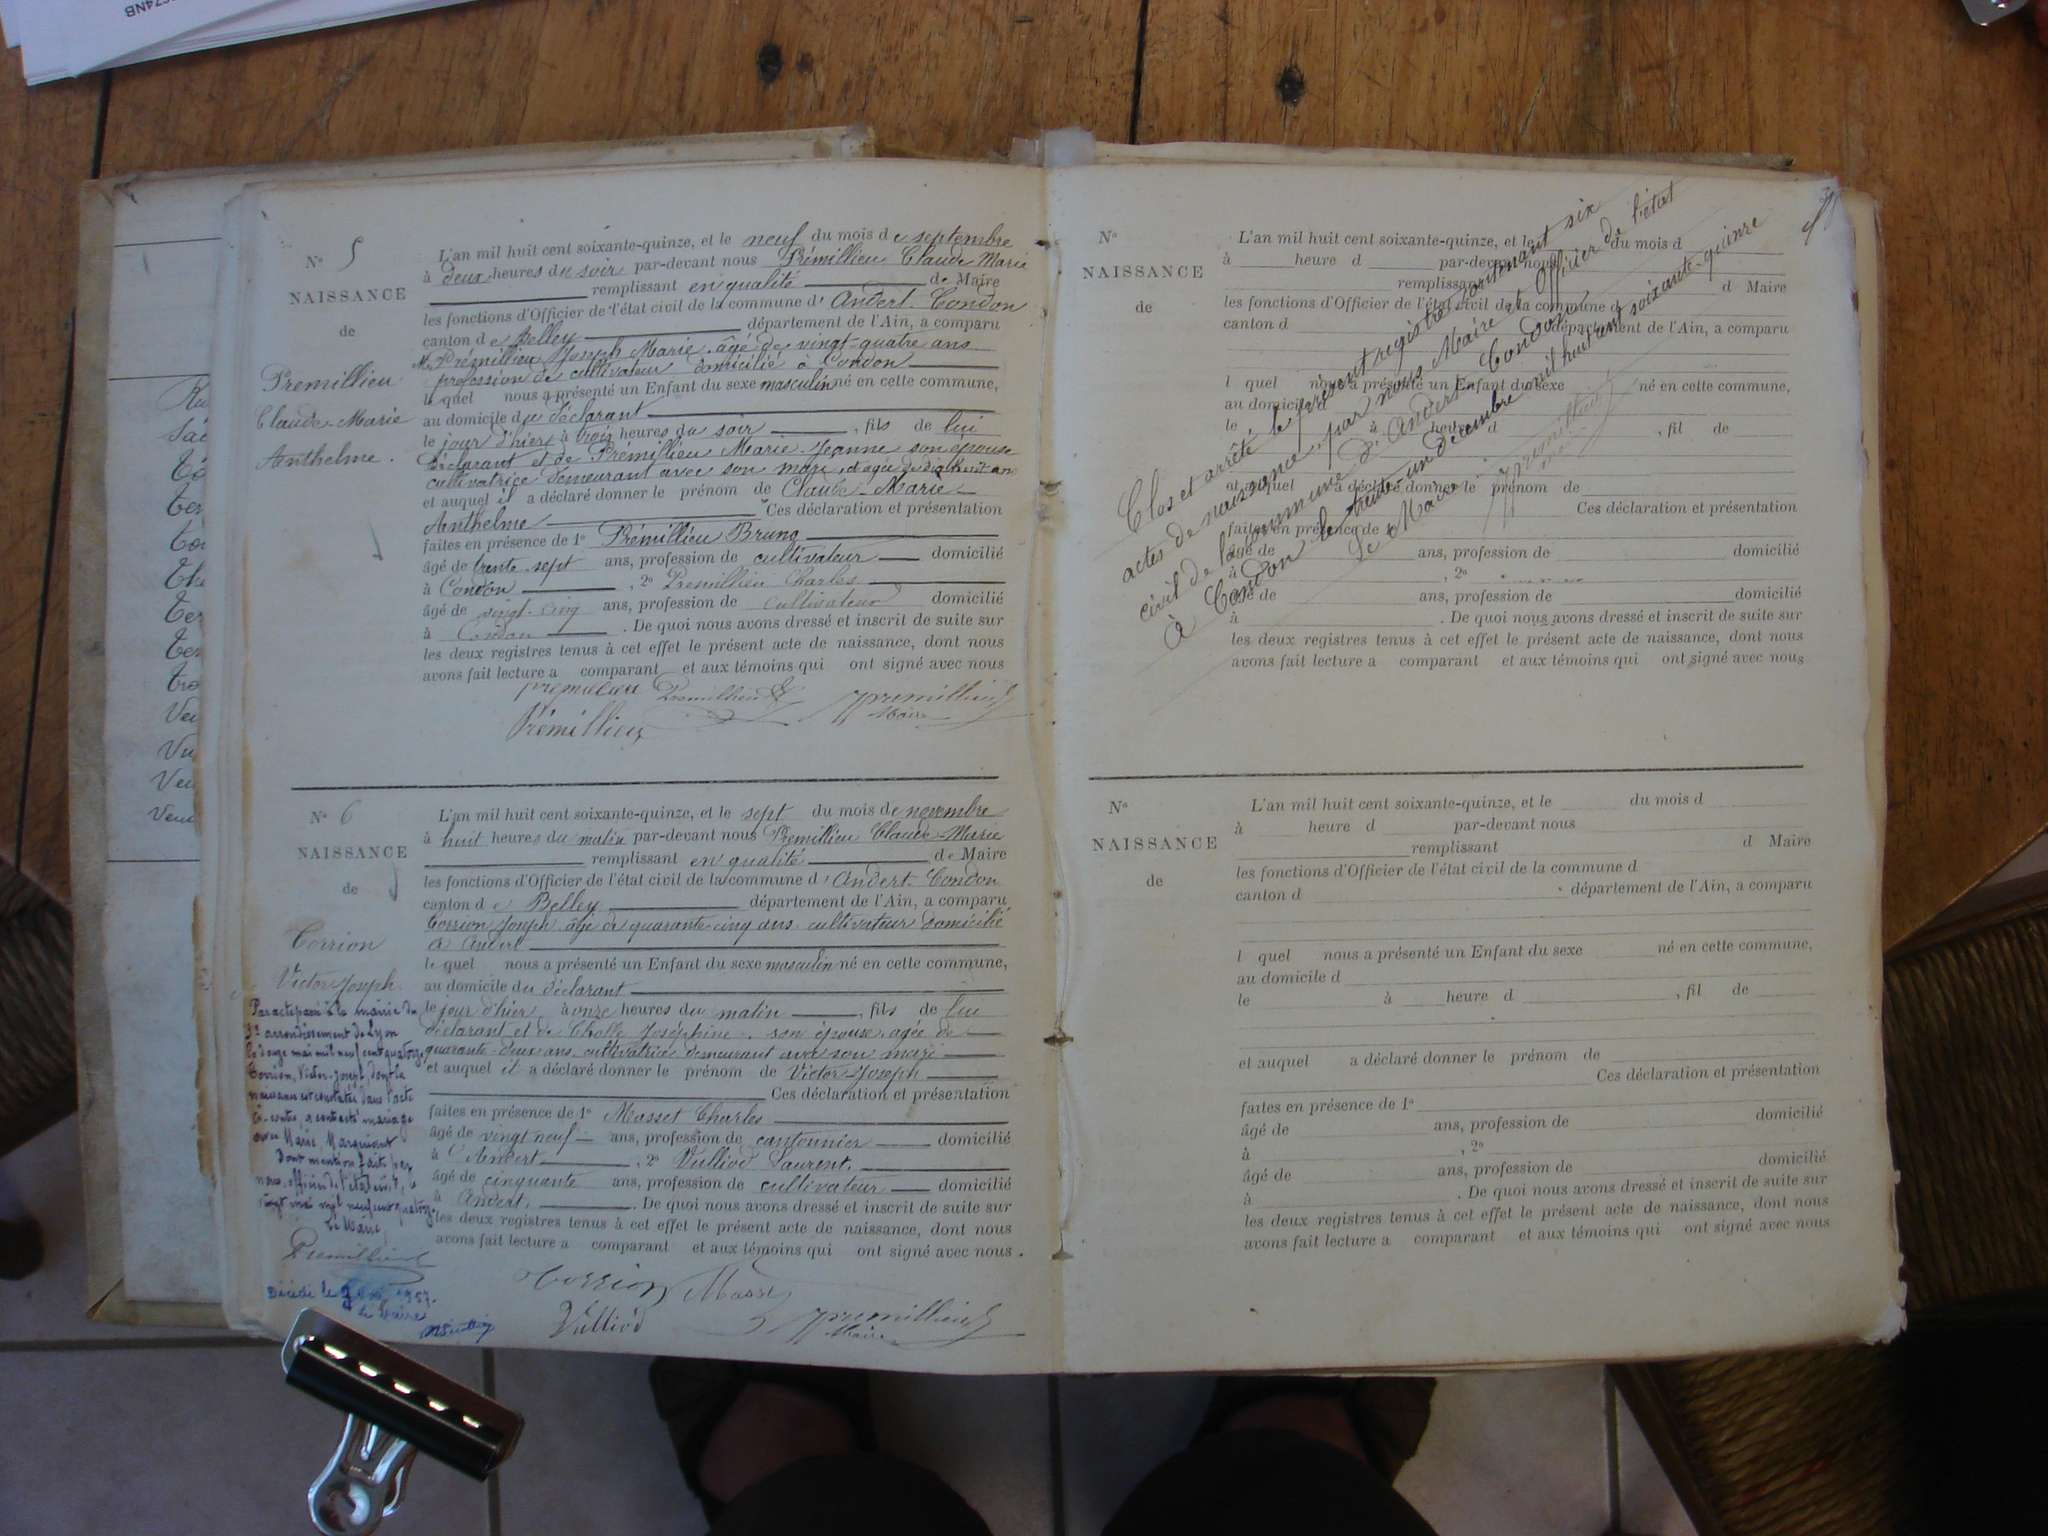 674NB
N° 5
NAISSANCE
de
Prémillieu
Claude-Marie
Anthelme.
L'an mil huit cent soixante-quinze, et le neuf du mois de septembre
à deux heures du soir par-devant nous Prémillieu Claude Marie
remplissant en qualité de Maire
les fonctions d'Officier de l'état civil de la commune d'Andert-Condon
canton de Belley département de l'Ain, a comparu
Mr Prémillieu Joseph Marie, âgé de vingt-quatre ans
profession de cultivateur domicilié à Condon
le quel nous a présenté un Enfant du sexe masculin né en cette commune,
au domicile du déclarant
le jour d'hier à trois heures du soir, fils de lui
déclarant et de Prémillieu Marie Jeanne son épouse
cultivatrice demeurant avec son mari, et agée de dix huit ans
et auquel il a déclaré donner le prénom de Claude-Marie
Anthelme Ces déclaration et présentation
faites en présence de 1° Prémillieu Bruno
âgé de trente-sept ans, profession de cultivateur domicilié
à Condon, 2° Prémillieu Charles
âgé de vingt-cinq ans, profession de cultivateur domicilié
à Condon. De quoi nous avons dressé et inscrit de suite sur
les deux registres tenus à cet effet le présent acte de naissance, dont nous
avons fait lecture a comparant et aux témoins qui ont signé avec nous
premilieu Premillieu Premillieu
Maire
Prémillieu
N° 6
NAISSANCE
de
Corrion
Victor Joseph
Par acte passé à la mairie du
3e arrondissement de Lyon
le douze mai mil neuf cent quatorze
Corrion, Victor-Joseph, dont la
naissance est constatée dans l'acte
ci-contre, a contracté mariage
avec Marie
Dont mention faite par
nous, officier de l'état civil, le
vingt mai mil neuf cent quatorze.
Le Maire
Premillieu
Décédé le 1957.
Le Maire
L'an mil huit cent soixante-quinze, et le sept du mois de novembre
à huit heures du matin par-devant nous Prémillieu Claude-Marie
remplissant en qualité de Maire
les fonctions d'Officier de l'état civil de la commune d'Andert-Condon
canton de Belley département de l'Ain, a comparu
Corrion Joseph âgé de quarante-cinq ans cultivateur domicilié
à Andert
le quel nous a présenté un Enfant du sexe masculin né en cette commune,
au domicile du déclarant
le jour d'hier, à onze heures du matin, fils de lui
déclarant et de Cholle Joséphine, son épouse, agée de
quarante-deux ans, cultivatrice demeurant avec son mari
et auquel il a déclaré donner le prénom de Victor Joseph
Ces déclaration et présentation
faites en présence de 1° Masset Charles
âgé de vingt neuf ans, profession de cantonnier domicilié
à Andert, 2° Vulliod Laurent,
âgé de cinquante ans, profession de cultivateur domicilié
à Andert. De quoi nous avons dressé et inscrit de suite sur
les deux registres tenus à cet effet le présent acte de naissance, dont nous
avons fait lecture a comparant et aux témoins qui ont signé avec nous.
Corrion Masset
Vulliod Premillieu
Maire
N°
NAISSANCE
de
L'an mil huit cent soixante-quinze, et le du mois d
à heure d par-devant nous
remplissant d Maire
les fonctions d'Officier de l'état civil de la commune d
canton d département de l'Ain, a comparu
l quel nous a présenté un Enfant du sexe né en cette commune,
au domicile d
le , à heure d , fil de
et auquel a déclaré donner le prénom de
Ces déclaration et présentation
faites en présence de 1°
âgé de ans, profession de domicilié
à , 2°
âgé de ans, profession de domicilié
à . De quoi nous avons dressé et inscrit de suite sur
les deux registres tenus à cet effet le présent acte de naissance, dont nous
avons fait lecture a comparant et aux témoins qui ont signé avec nous
Clos et arrêté le présent registre contenant six
actes de naissance, par nous Maire et Officier de l'état
civil de la commune d'Andert-Condon
à Condon le trente-un décembre mil huit cent soixante-quinze
Le Maire
Premillieu
N°
NAISSANCE
de
L'an mil huit cent soixante-quinze, et le du mois d
à heure d par-devant nous
remplissant d Maire
les fonctions d'Officier de l'état civil de la commune d
canton d département de l'Ain, a comparu
l quel nous a présenté un Enfant du sexe né en cette commune,
au domicile d
le à heure d , fil de
et auquel a déclaré donner le prénom de
Ces déclaration et présentation
faites en présence de 1°
âgé de ans, profession de domicilié
à , 2°
âgé de ans, profession de domicilié
à . De quoi nous avons dressé et inscrit de suite sur
les deux registres tenus à cet effet le présent acte de naissance, dont nous
avons fait lecture a comparant et aux témoins qui ont signé avec nous